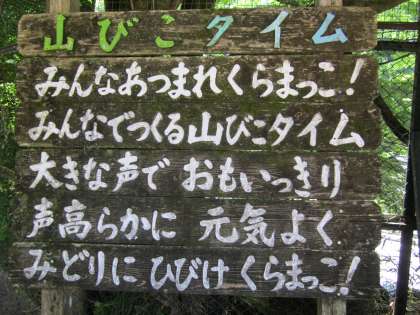 山びこタイム
みんなあつまれくらまっこ!
みんなでつくる山びこタイム
大きな声で おもいっきり
声高らかに 元気よく
みどりに ひびけ くらまっこ!